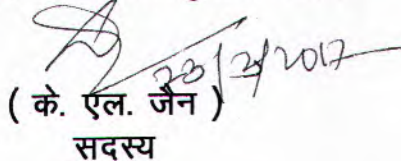 23/3/2017
( के. एल. जैन )
सदस्य